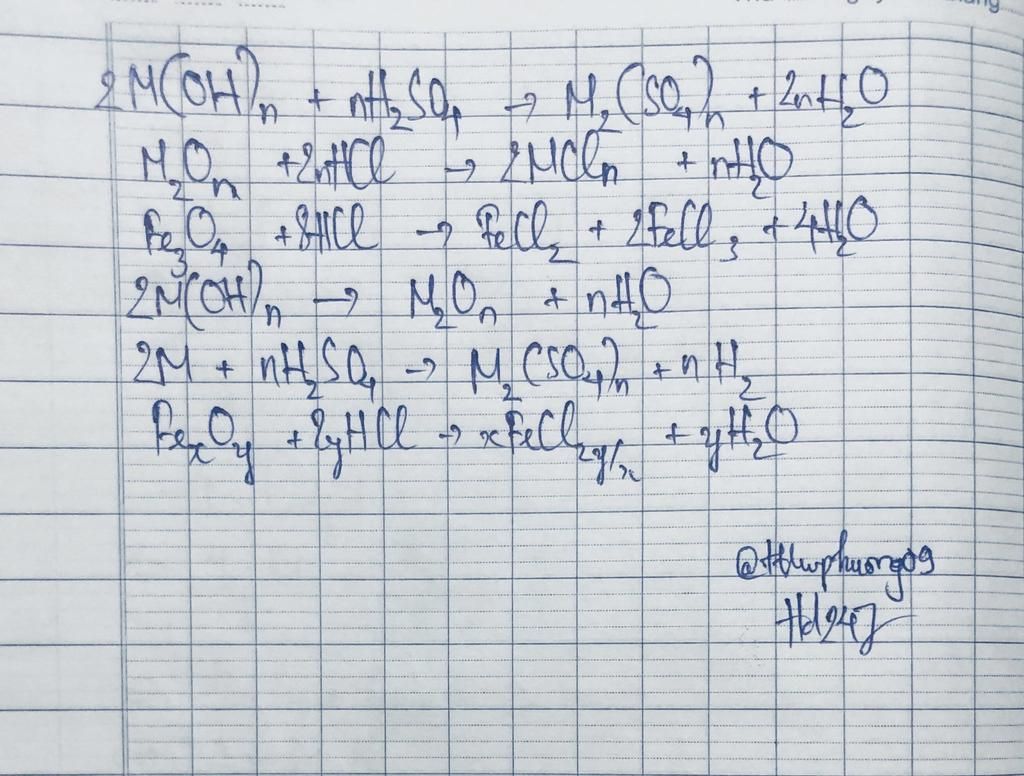 2M(OH)ₙ + nH₂SO₄ → M₂(SO₄)ₙ + 2nH₂O
M₂Oₙ + 2nHCl → 2MClₙ + nH₂O
Fe₃O₄ + 8HCl → FeCl₂ + 2FeCl₃ + 4H₂O
2M(OH)ₙ → M₂Oₙ + nH₂O
2M + nH₂SO₄ → M₂(SO₄)ₙ + nH₂
FeₓOᵧ + 2yHCl → xFeCl₂y/ₓ + yH₂O
Hd247